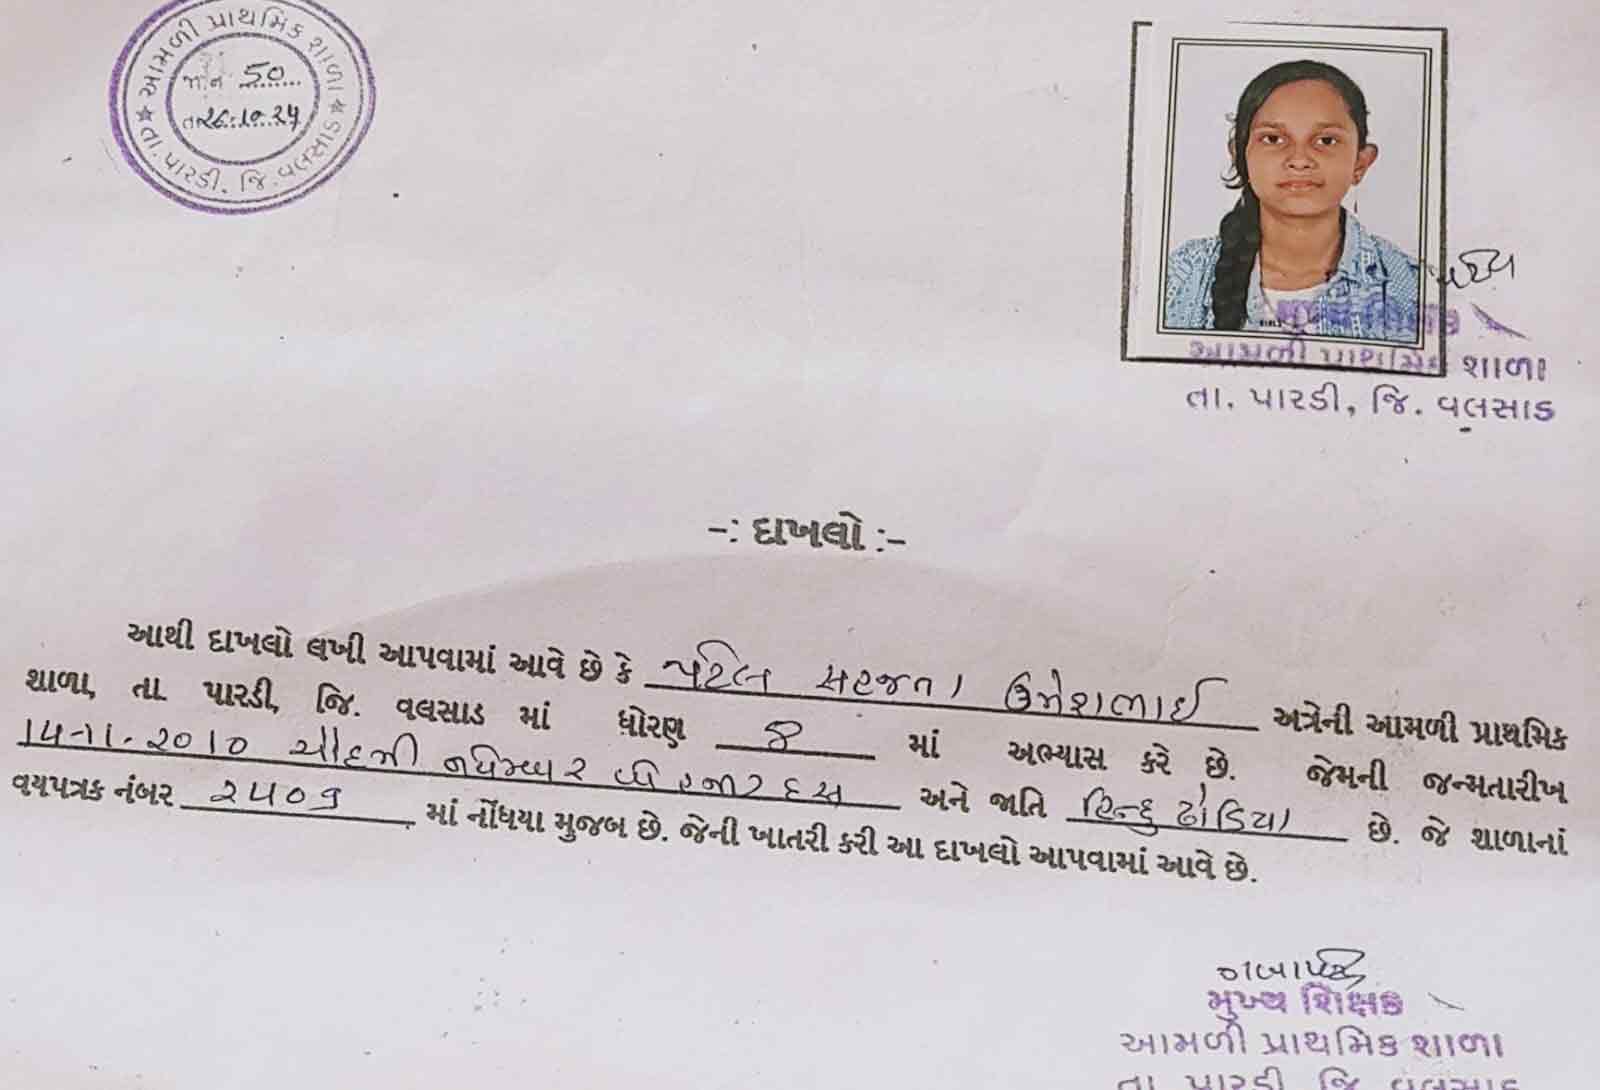 આમળી પ્રાથમિક શાળા
જા નં 50
તા 26.10.24
★ તા. પારડી, જિ. વલસાડ ★
મુખ્ય શિક્ષક
આમળી પ્રાથમિક શાળા
તા. પારડી, જિ. વલસાડ
-: દાખલો :-
આથી દાખલો લખી આપવામાં આવે છે કે પટેલ ઉમેશભાઈ અત્રેની આમળી પ્રાથમિક
શાળા, તા. પારડી, જિ. વલસાડ માં ધોરણ ૪ માં અભ્યાસ કરે છે. જેમની જન્મતારીખ
14-11-2010 ચૌદમી નવેમ્બર બે હજાર દસ અને જાતિ હિન્દુ ઢોડિયા છે. જે શાળાનાં
વયપત્રક નંબર ૨૫૦૧ માં નોંધયા મુજબ છે. જેની ખાતરી કરી આ દાખલો આપવામાં આવે છે.
મુખ્ય શિક્ષક
આમળી પ્રાથમિક શાળા
તા. પારડી, જિ. વલસાડ